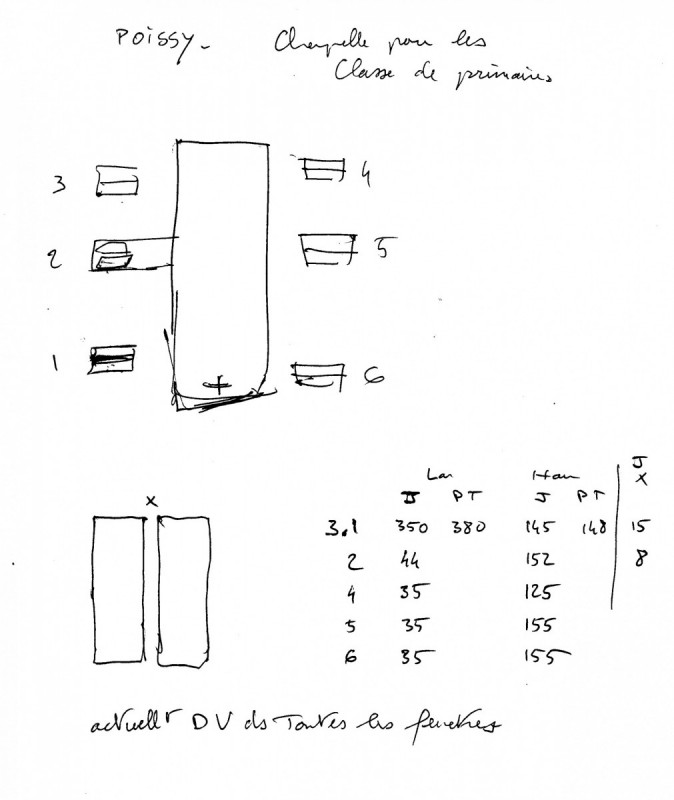 POISSY. Chapelle pour les
Classe de primaires
3 4
2 5
1 6
x
Lar Hau J
J PT J PT X
3.1 350 380 145 148 15
2 44 152 8
4 35 125
5 35 155
6 35 155
actuellt DV ds Toutes les fenetres